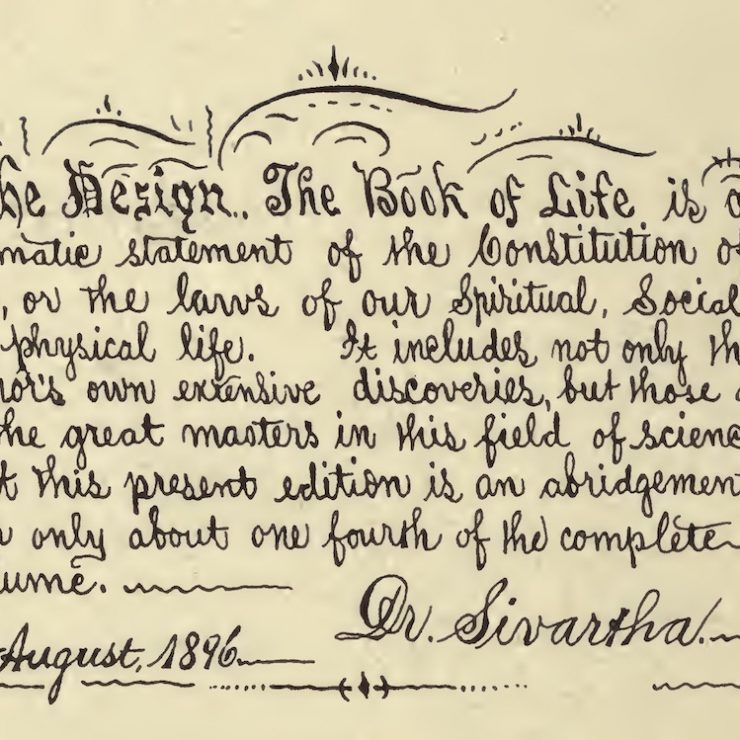 he Design.. The Book of Life is a
matic statement of the Constitution of
, or the laws of our Spiritual, Social
physical life. It includes not only th
hor's own extensive discoveries, but those
the great masters in this field of scienc
t this present edition is an abridgement
only about one fourth of the complete
ume.
August, 1896. Dr. Sivartha.